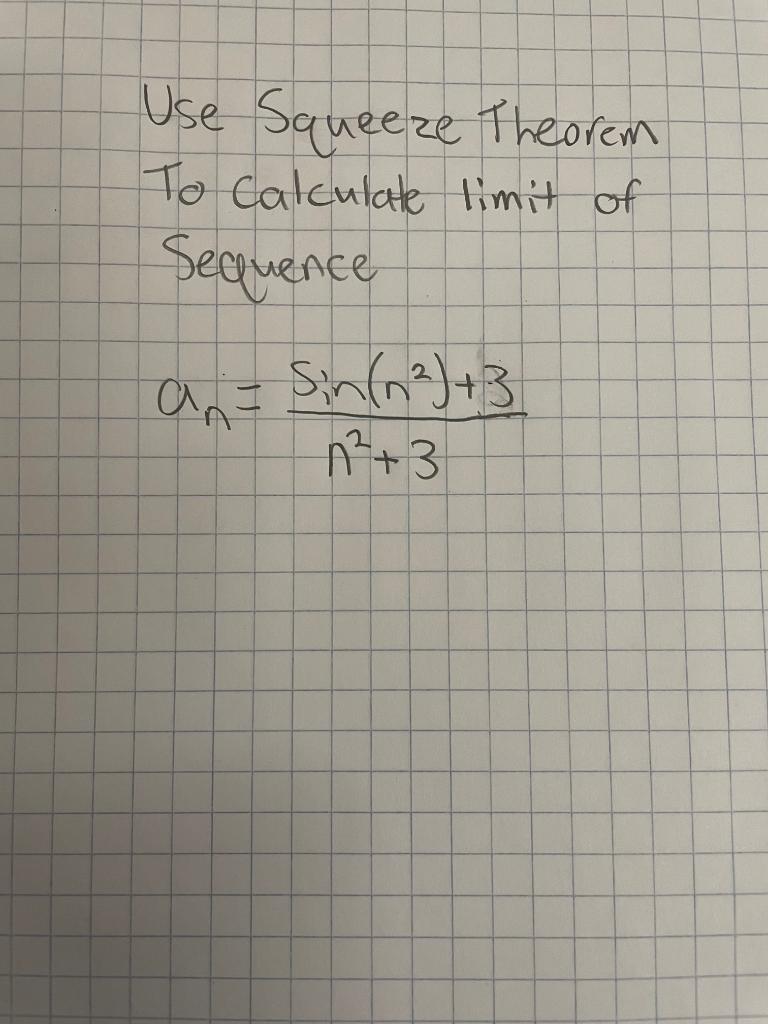 Use Squeeze Theorem
To Calculate limit of
Sequence
aₙ = (Sin(n²)+3)/(n²+3)